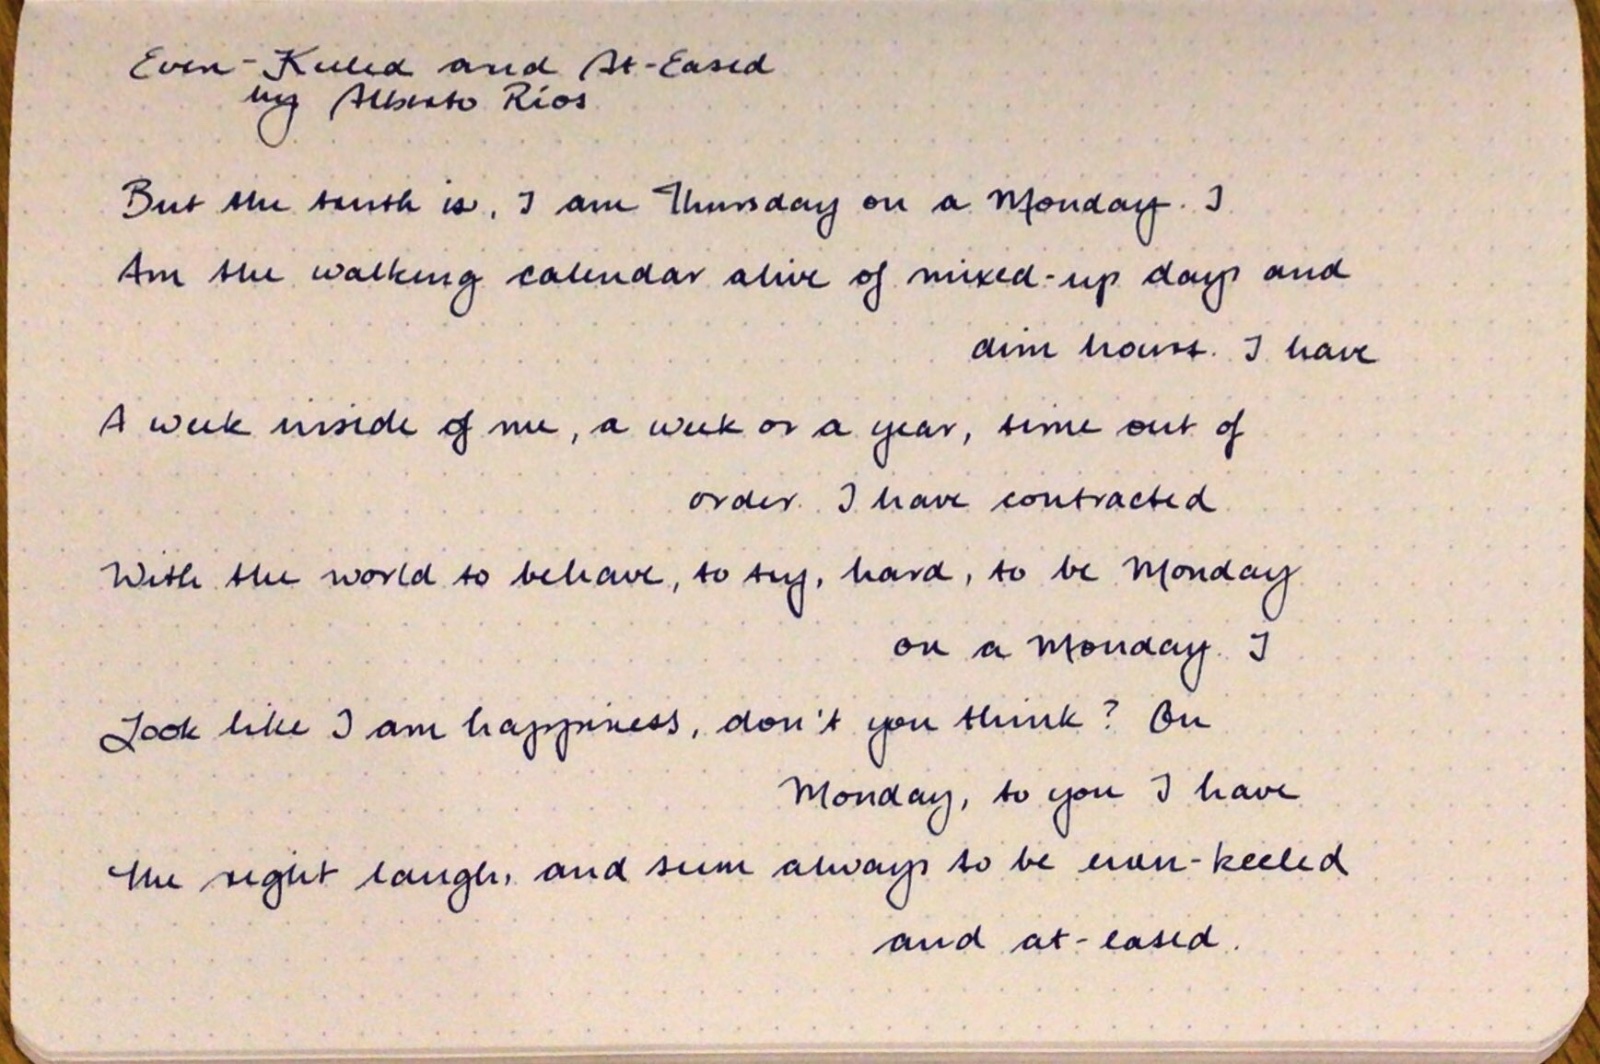 Even-Keeled and At-Eased
by Alberto Ríos
But the truth is, I am Thursday on a Monday. I
Am the walking calendar alive of mixed-up days and
dim hours. I have
A week inside of me, a week or a year, time out of
order. I have contracted
With the world to behave, to try, hard, to be Monday
on a Monday. I
Look like I am happiness, don't you think? On
Monday, to you I have
The right laugh, and seem always to be even-keeled
and at-eased.